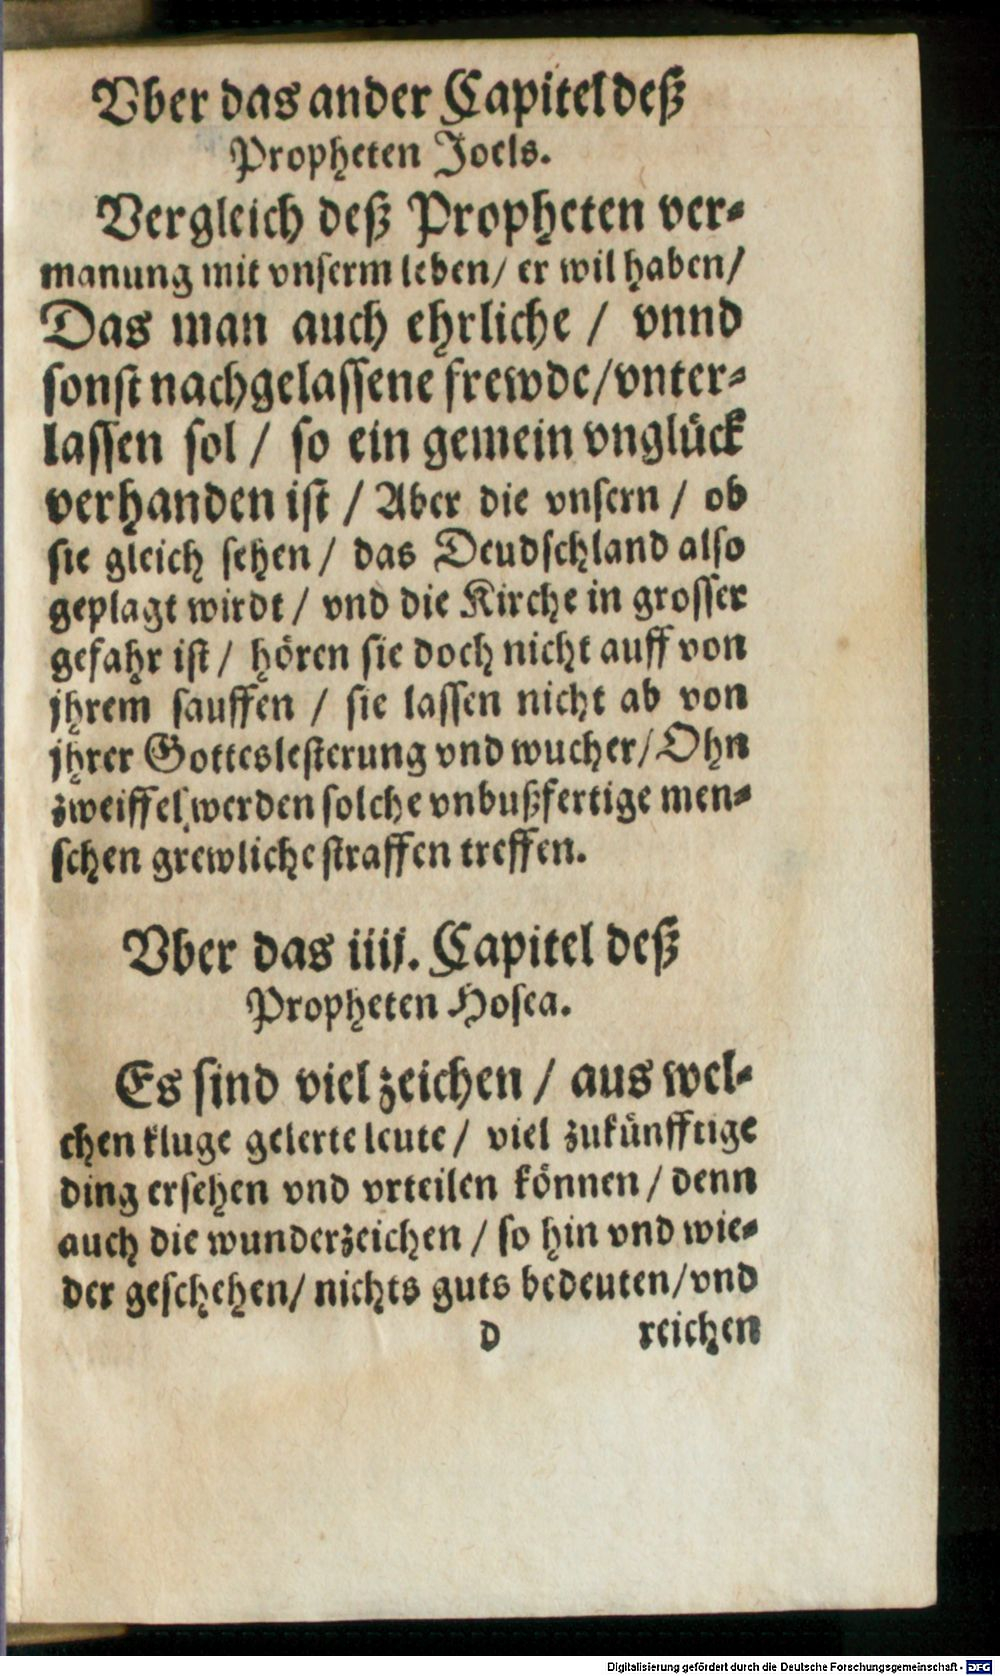 Vber das ander Capitel deß
Propheten Joels.
Vergleich deß Propheten ver-
manung mit vnserm leben/ er wil haben/
Das man auch ehrliche / vnnd
sonst nachgelassene frewde/vnter-
lassen sol / so ein gemein vnglück
verhanden ist / Aber die vnsern / ob
sie gleich sehen / das Deudschland also
geplagt wirdt / vnd die Kirche in grosser
gefahr ist / hören sie doch nicht auff von
jhrem sauffen / sie lassen nicht ab von
jhrer Gotteslesterung vnd wucher/ Ohn
zweiffel werden solche vnbußfertige men-
schen grewliche straffen treffen.
Vber das iiij. Capitel deß
Propheten Hosea.
Es sind viel zeichen / aus wel-
chen kluge gelerte leute / viel zukünfftige
ding ersehen vnd vrteilen können / denn
auch die wunderzeichen / so hin vnd wie-
der geschehen/ nichts guts bedeuten/vnd
d reichen
Digitalisierung gefördert durch die Deutsche Forschungsgemeinschaft - DFG